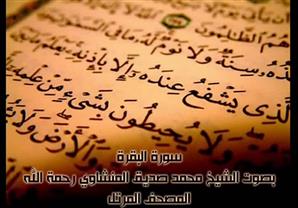 هُمُ ٱلظَّٰلِمُونَ
سِنَةٌ وَلَا نَوْمٌ لَّهُۥ مَا فِى
ٱلَّذِى يَشْفَعُ عِندَهُۥٓ إِلَّا بِإِذْنِهِۦ يَعْلَمُ
وَلَا يُحِيطُونَ بِشَىْءٍ مِّنْ عِلْمِهِ
وَٱلْأَرْضَ وَلَا
سورة البقرة
بصوت الشيخ محمد صديق المنشاوي رحمة الله
المصحف المرتل